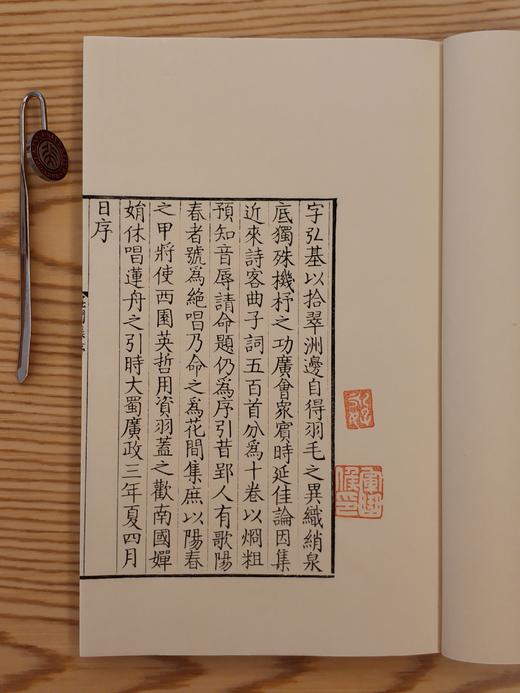 字弘基以拾翠洲邊自得羽毛之異織綃泉
底獨殊機杼之功廣會衆賓時延佳論因集
近來詩客曲子詞五百首分爲十卷以烱粗
預知音辱請命題仍爲序引昔郢人有歌陽
春者號爲絶唱乃命之爲花間集庶以陽春
之甲將使西園英哲用資羽蓋之歡南國嬋
娟休唱蓮舟之引時大蜀廣政三年夏四月
日序